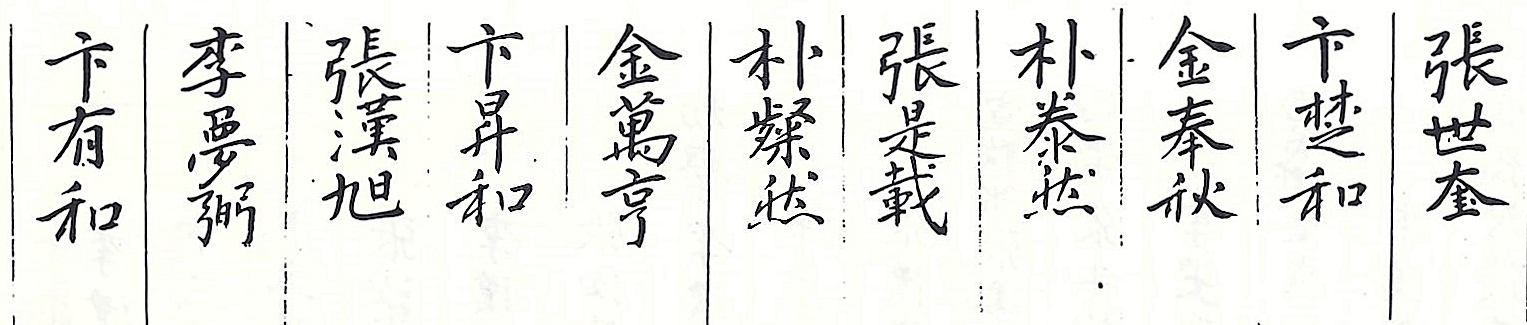 張世奎
卞楚和
金奉秋
朴泰然
張是載
朴粲然
金萬亨
卞昇和
張漢旭
李夢弼
卞有和